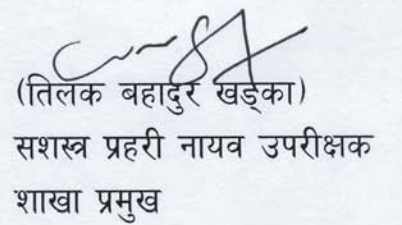 (तिलक बहादुर खड्का)
सशस्त्र प्रहरी नायव उपरीक्षक
शाखा प्रमुख